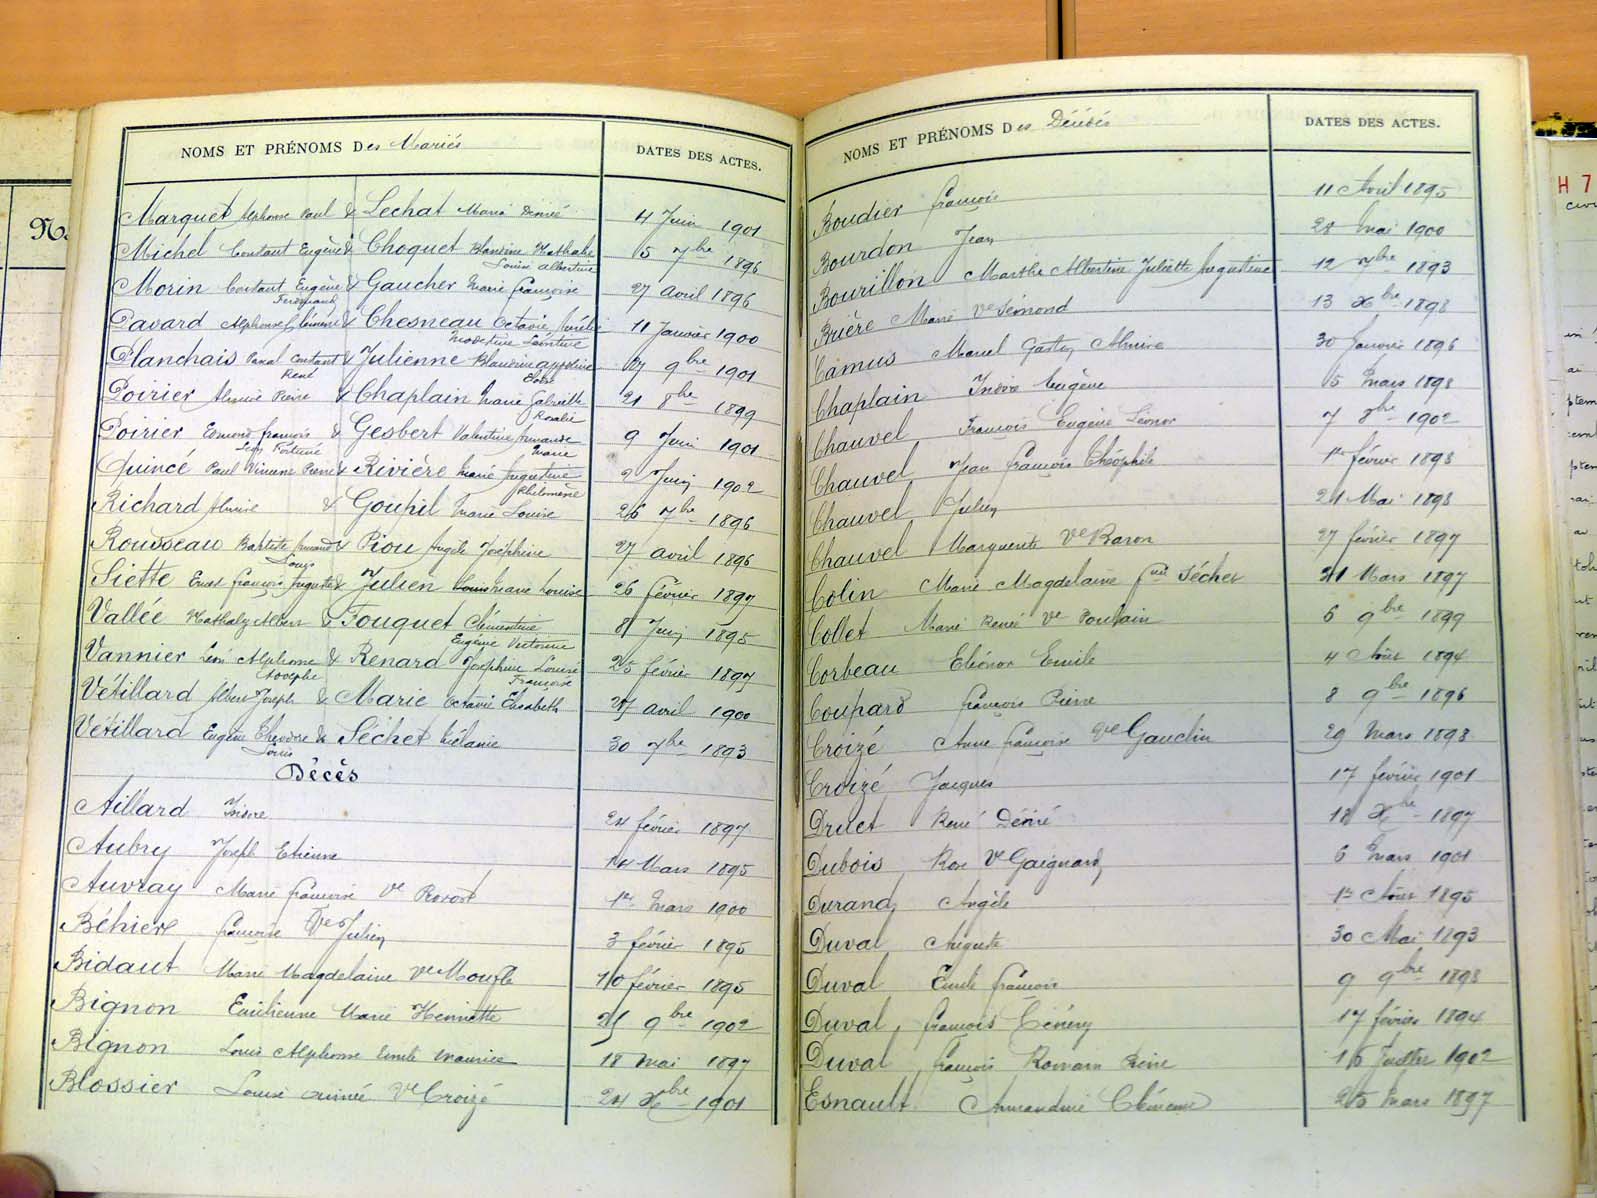 NOMS ET PRÉNOMS Des Mariés DATES DES ACTES.
Marquet Alphonse Paul & Lechat Maria Désirée 4 Juin 1901
Michel Constant Eugène & Choquet Blandine Mathalie 15 7bre 1896
Louise Albertine
Morin Constant Eugène & Gaucher Marie françoise 27 avril 1896
Ferdinand
Pavard Alphonse Clément & Chesneau Octavie Aurélie 11 Janvier 1900
Modestine Léontine
Planchais Pascal Constant & Julienne Blandine appoline 27 9bre 1901
René
Poirier Aimé Pierre & Chaplain Marie Gabrielle 21 8bre 1899
Rosalie
Poirier Edmond françois & Gesbert Valentine Armande 9 Juin 1901
Léon Fortuné Marie
Quincé Paul Vincent Pierre & Rivière Marie Augustine 2 Juin 1902
Philomène
Richard Aimé & Goupil Marie Louise 26 7bre 1896
Rousseau Baptiste Armand & Piou Angèle Joséphine 27 avril 1896
Louis
Siette Ernest françois Auguste & Julien Louise 26 février 1897
Vallée Nathaly Albert & Fouquet Clémentine 8 Juin 1895
Eugénie Victorine
Vannier Léon Alphonse & Renard Joséphine Louise 25 février 1897
Adolphe Françoise
Vétillard Albert Joseph & Marie Octavie Elisabeth 27 avril 1900
Vétillard Eugène Théodore & Séchet Mélanie 30 7bre 1893
Louis
Décès
Aillard Isidore 24 février 1897
Aubry Joseph Etienne 14 Mars 1895
Auvray Marie françoise Ve Provost 1er Mars 1900
Béhier françoise Ve Julien 3 février 1895
Bidaut Marie Magdelaine Ve Moufle 10 février 1895
Bignon Emilienne Marie Henriette 25 9bre 1902
Bignon Louis Alphonse Emile Maurice 18 Mai 1897
Blossier Louise Aimée Ve Croizé 24 Xbre 1901
NOMS ET PRÉNOMS Des Décédés DATES DES ACTES.
Boudier françois 11 Avril 1895
Bourdon Jean 28 Mai 1900
Bourillon Marthe Albertine Juliette Augustine 12 7bre 1893
Brière Marie Ve Sémond 13 Xbre 1898
Camus Marcel Gaston Aimé 30 Janvier 1896
Chaplain Isidore Eugène 5 Mars 1898
Chauvel François Eugène Léonor 7 8bre 1902
Chauvel Jean françois Théophile 1er février 1898
Chauvel Julien 21 Mai 1898
Chauvel Marguerite Ve Baron 27 février 1897
Colin Marie Magdelaine fme Séchet 21 Mars 1897
Collet Marie Renée Ve Poulain 6 9bre 1899
Corbeau Eléonor Emile 4 Août 1894
Coupard françois Pierre 8 9bre 1896
Croizé Anne françoise Ve Gauclin 29 Mars 1898
Croizé Jacques 17 février 1901
Druet René Désiré 18 Xbre 1897
Dubois Rose Ve Gaignard 6 Mars 1901
Durand Angèle 1er Août 1895
Duval Auguste 30 Mai 1893
Duval Emile françois 9 9bre 1898
Duval françois Ténény 17 février 1894
Duval françois Romain Pierre 15 Juillet 1902
Esnault Armandine Clémence 25 Mars 1897
H 7